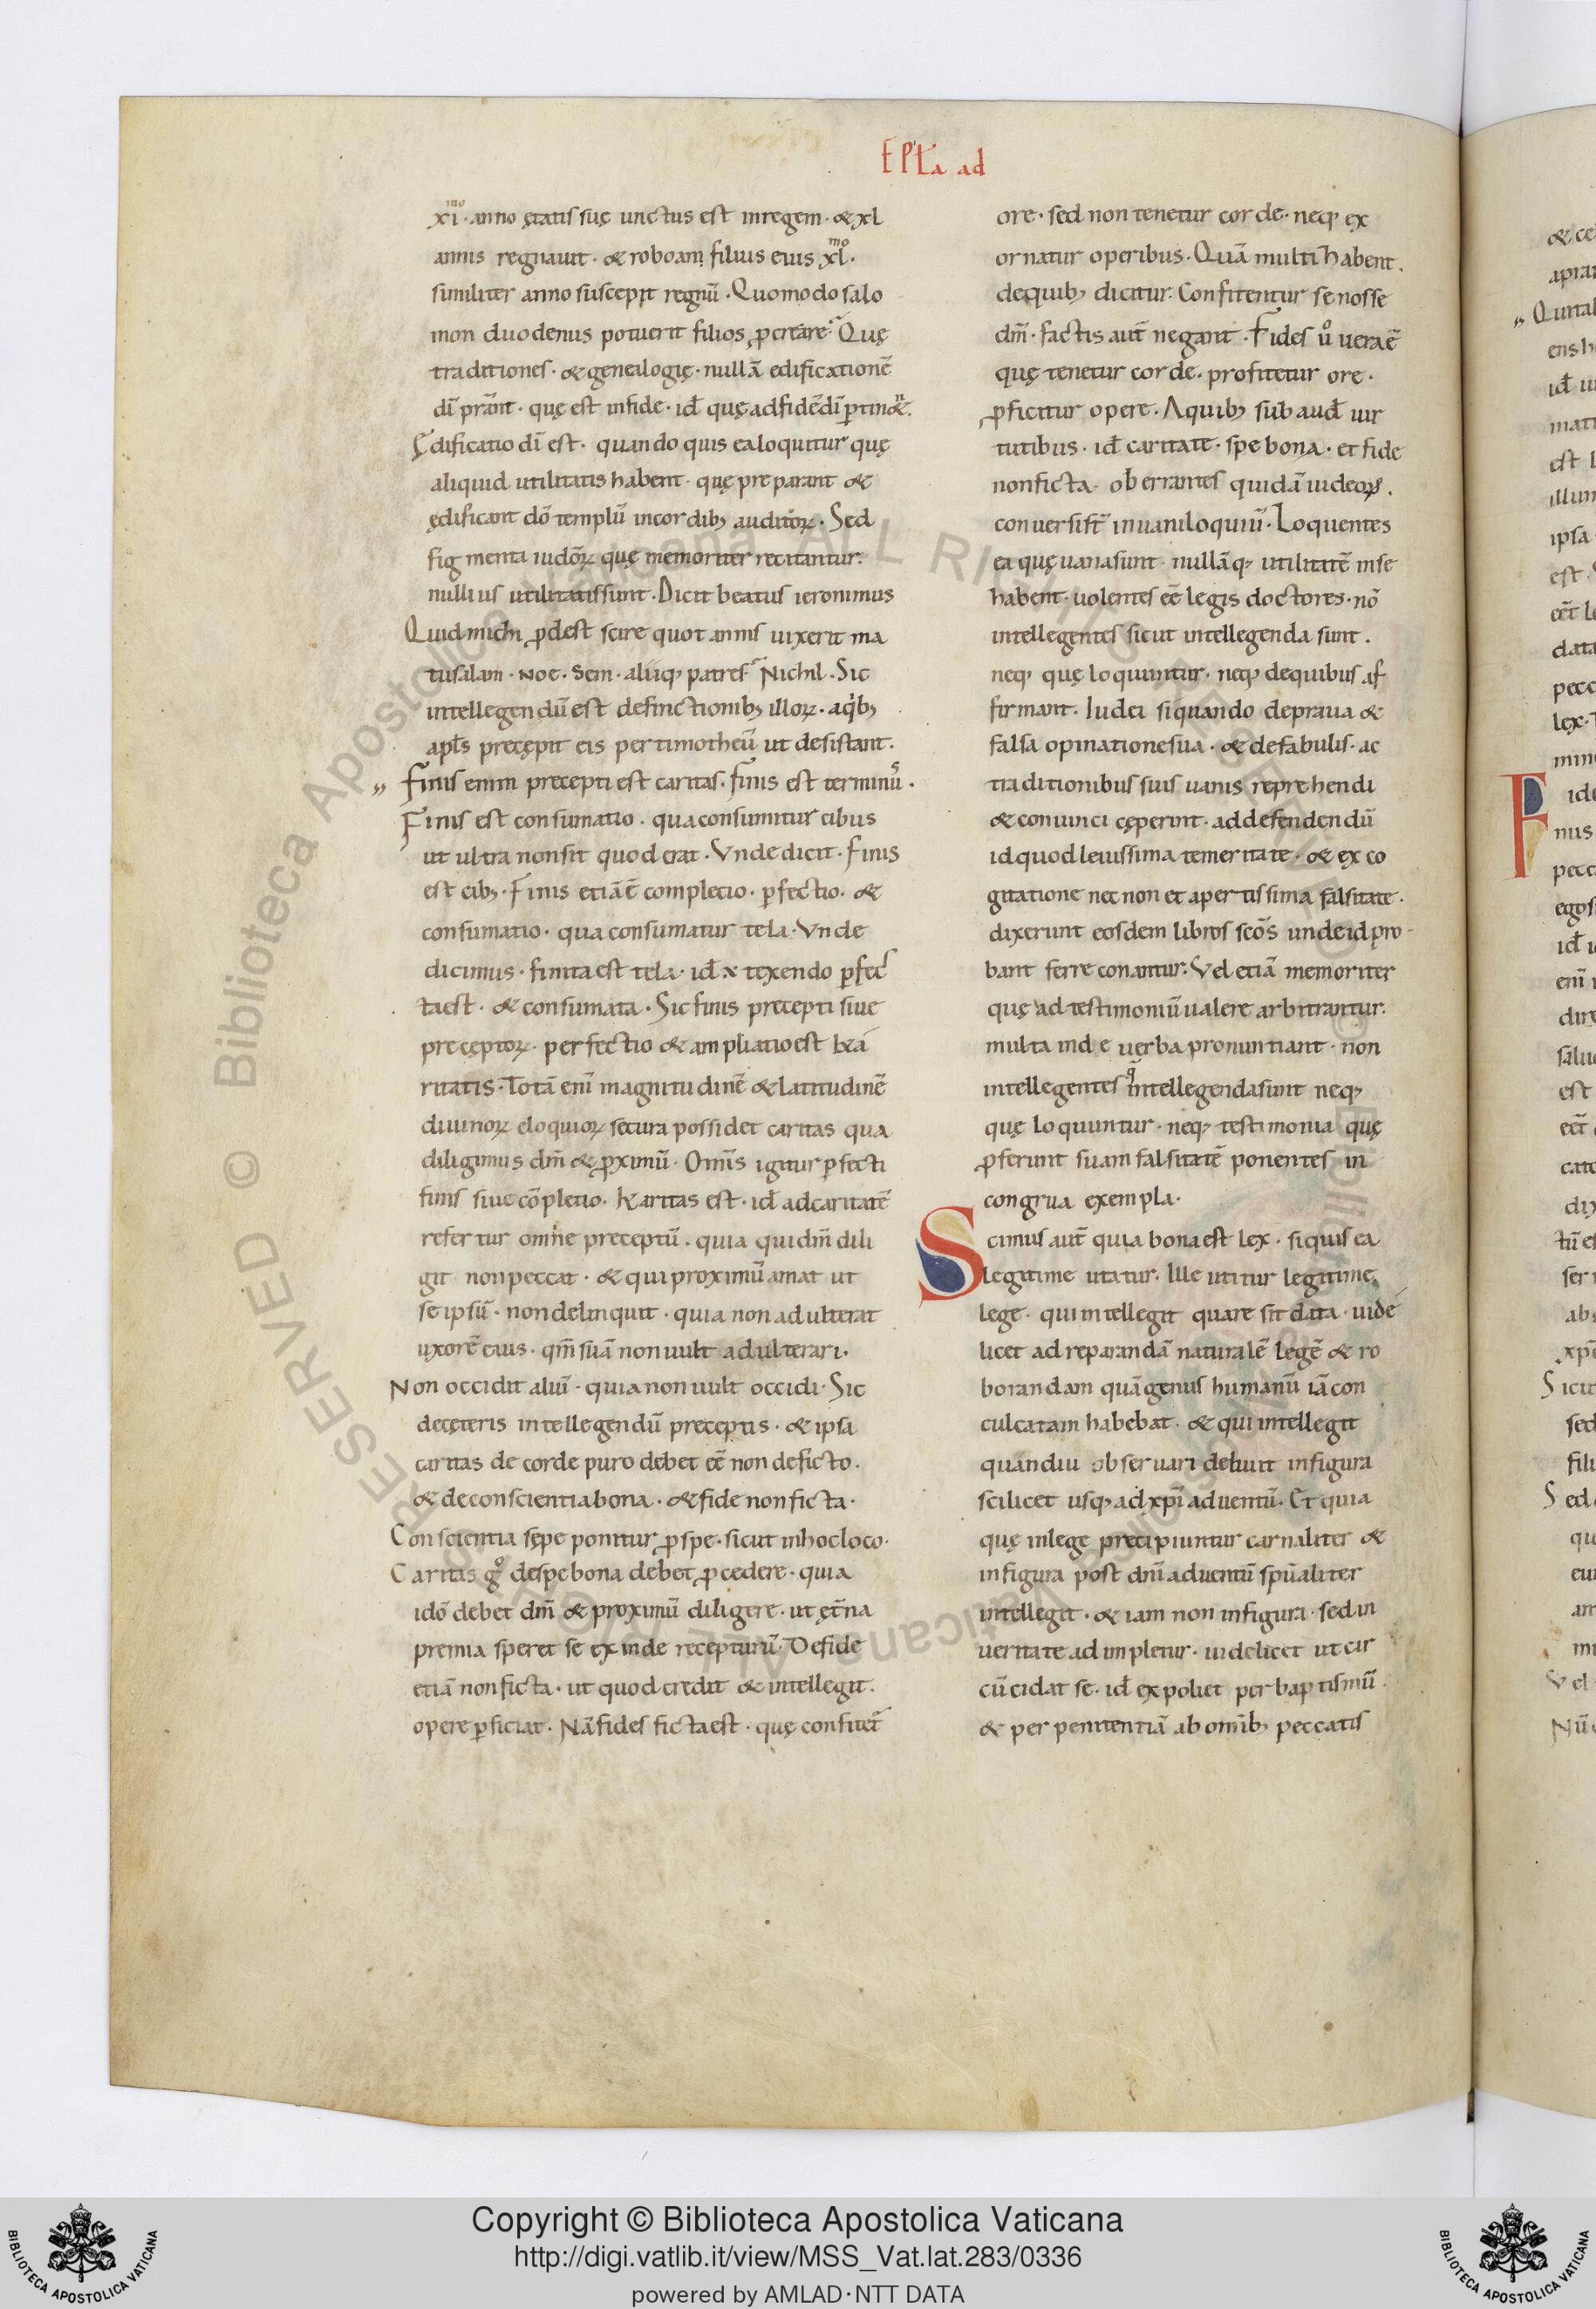 EPLa ad
xi·mo anno ętatis suę unctus est inregem· & xl
annis regnauit· & roboam filius eius xl·mo
similiter anno suscepit regnū· Quomodo salo
mon duodenus potuerit filios ꝓcreare· Quę
traditiones· & genealogię· nullā edificationē
dī p̄rant· quę est infide· id̄ quę adfidē dī ꝑtin&·
Ędificatio dī est· quando quis ea loquitur quę
aliquid utilitatis habent· quę preparant &
ędificant dō templū incordib; auditorꝝ· Sed
figmenta iudōrꝝ quę memoriter recitantur·
nullius utilitatis sunt· Dicit beatus ieronimus
Quid michi ꝓdest scire quot annis uixerit ma
tusalam· Noe· Sem· aliiq; patres· Nichil· Sic
intellegendū est definctionib; illorꝝ· aq'b;
apl̄s pręcępit eis per timotheū ut desistant·
„ Finis enim precepti est caritas· finis est terminū·
Finis est consumatio· qua consumitur cibus
ut ultra non sit quod erat· Vnde dicit· Finis
est cib;· Finis etiā ē completio· ꝑfectio· &
consumatio· qua consumatur tela· Vnde
dicimus· finita est tela· id̄ texendo ꝑfec
ta est· & consumata· Sic finis precepti siue
pręcęptorꝝ· perfectio & ampliatio est
ritatis· Totā enī magnitudinē & latitudinē
diuinorꝝ eloquiorꝝ secura possidet caritas qua
diligimus dm̄ & ꝓximū· Omīs igitur ꝑfecti
finis siue cōpletio· Karitas est· id̄ ad caritatē
refertur omne preceptū· quia qui dm̄ dili
git non peccat· & qui proximū amat ut
se ipsū· non delinquit· quia non adulterat
uxorē eius· qm̄ suā non uult adulterari·
Non occidit aliū· quia non uult occidi· Sic
decęteris intellegendū preceptis· & ipsa
caritas de corde puro debet eē non deficto·
& deconscientia bona· & fide non ficta·
Conscientia sępe ponitur ꝓ spe· sicut in hoc loco·
Caritas g° despe bona debet ꝓcedere· quia
idō debet dm̄ & proximū diligere· ut ęt̄na
premia speret se exinde recepturū· De fide
etiā non ficta· ut quod credit & intellegit·
opere ꝑficiat· Nā fides ficta est· quę confitet̄
ore· sed non tenetur corde· neq; ex
ornatur operibus· Quā multi habent·
dequib; dicitur· Confitentur se nosse
dm̄· factis aut̄ negant· Fides u° uera ē
quę tenetur corde· profitetur ore·
ꝓficitur opere· Aquib; subaud̄ uir
tutibus· id̄ caritate· spe bona· et fide
non ficta· oberrantes quidā iudeorꝝ·
conuersi st̄ in uaniloquiū· Loquentes
ea quę uana sunt· nullāq; utilitatē in se
habent· uolentes eē legis doctores· nō
intellegentes sicut intellegenda sunt·
neq; quę loquuntur· neq; dequibus af
firmant· Iudei siquando depraua &
falsa opinatione sua· & defabulis· ac
traditionibus suis uanis reprehendi
& conuinci cęperint· ad defendendū
id quod leuissima temeritate· & ex co
gitatione nec non et apertissima falsitate·
dixerunt eosdem libros scōs unde id pro
bant ferre conantur· Vel etiā memoriter
quę ad testimoniū ualere arbitrantur·
multa inde uerba pronuntiant· non
intellegentes q̄ intellegenda sunt neq;
quę loquuntur· neq; testimonia quę
ꝓferunt suam falsitatē ponentes in
congrua exempla·
Scimus aut̄ quia bona est lex· siquis ea
legitime utatur· Ille utitur legitime
lege· qui intellegit quare sit data· uide
licet ad reparandā naturalē legē & ro
borandam quā genus humanū iā con
culcatam habebat· & qui intellegit
quandiu obseruari debuit infigura
scilicet usq; ad xp̄i aduentū· Et quia
quę inlege precipiuntur carnaliter &
infigura post dnī aduentū spūaliter
intellegit· & iam non infigura· sed in
ueritate adimpletur· uidelicet ut cir
cūcidat se· id̄ expoliet per baptismū·
& per penitentiā ab omīb; peccatis
Copyright © Biblioteca Apostolica Vaticana
http://digi.vatlib.it/view/MSS_Vat.lat.283/0336
powered by AMLAD·NTT DATA